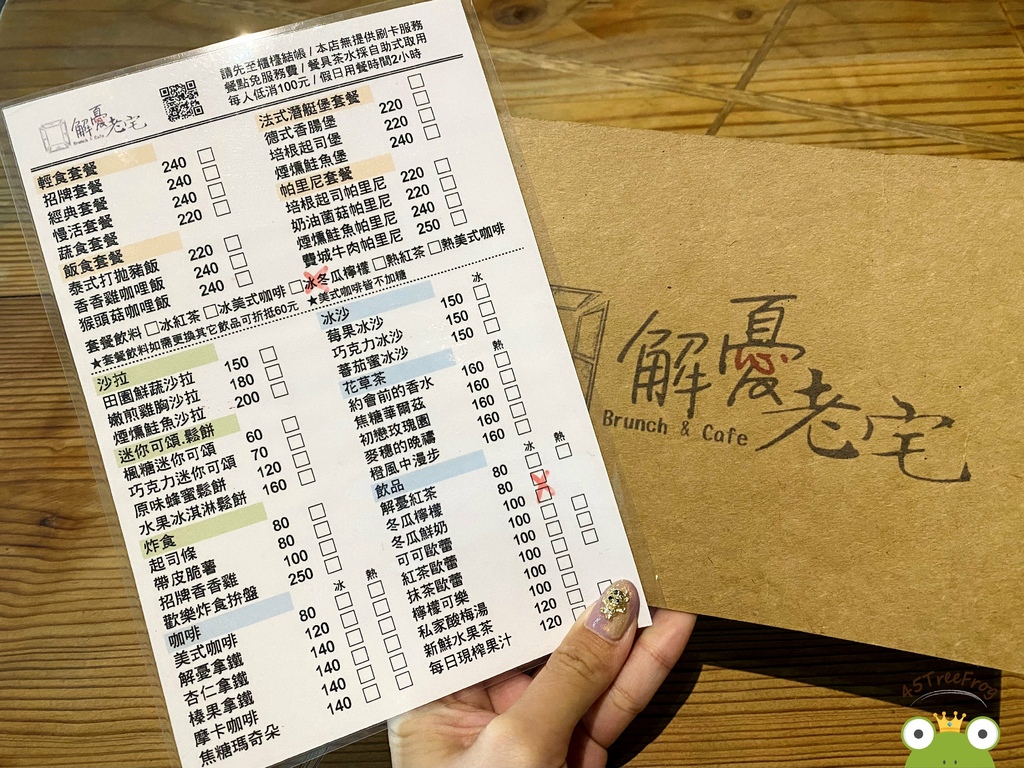 請先至櫃檯結帳 / 本店無提供刷卡服務
餐點免服務費 / 餐具茶水採自助式取用
每人低消100元 / 假日用餐時間2小時
解憂老宅
Brunch & Cafe
輕食套餐
招牌套餐 240
經典套餐 240
慢活套餐 240
蔬食套餐 220
飯食套餐
泰式打拋豬飯 220
香香雞咖哩飯 240
猴頭菇咖哩飯 240
法式潛艇堡套餐
德式香腸堡 220
培根起司堡 220
煙燻鮭魚堡 240
帕里尼套餐
培根起司帕里尼 220
奶油菌菇帕里尼 220
煙燻鮭魚帕里尼 240
費城牛肉帕里尼 250
套餐飲料 □冰紅茶 □冰美式咖啡 □冰冬瓜檸檬 □熱紅茶 □熱美式咖啡
★套餐飲料如需更換其它飲品可折抵60元 ★美式咖啡皆不加糖
沙拉
田園鮮蔬沙拉 150
嫩煎雞胸沙拉 180
煙燻鮭魚沙拉 200
迷你可頌.鬆餅
楓糖迷你可頌 60
巧克力迷你可頌 70
原味蜂蜜鬆餅 120
水果冰淇淋鬆餅 160
炸食
起司條 80
帶皮脆薯 80
招牌香香雞 100
歡樂炸食拚盤 250
咖啡 冰 熱
美式咖啡 80
解憂拿鐵 120
杏仁拿鐵 140
榛果拿鐵 140
摩卡咖啡 140
焦糖瑪奇朵 140
冰沙 冰
莓果冰沙 150
巧克力冰沙 150
蕃茄蜜冰沙 150
花草茶 熱
約會前的香水 160
焦糖華爾茲 160
初戀玫瑰園 160
麥穗的晚禱 160
橙風中漫步 160
飲品 冰 熱
解憂紅茶 80
冬瓜檸檬 80
冬瓜鮮奶 100
可可歐蕾 100
紅茶歐蕾 100
抹茶歐蕾 100
檸檬可樂 100
私家酸梅湯 100
新鮮水果茶 120
每日現榨果汁 120
解憂老宅
Brunch & Cafe
45TreeFrog